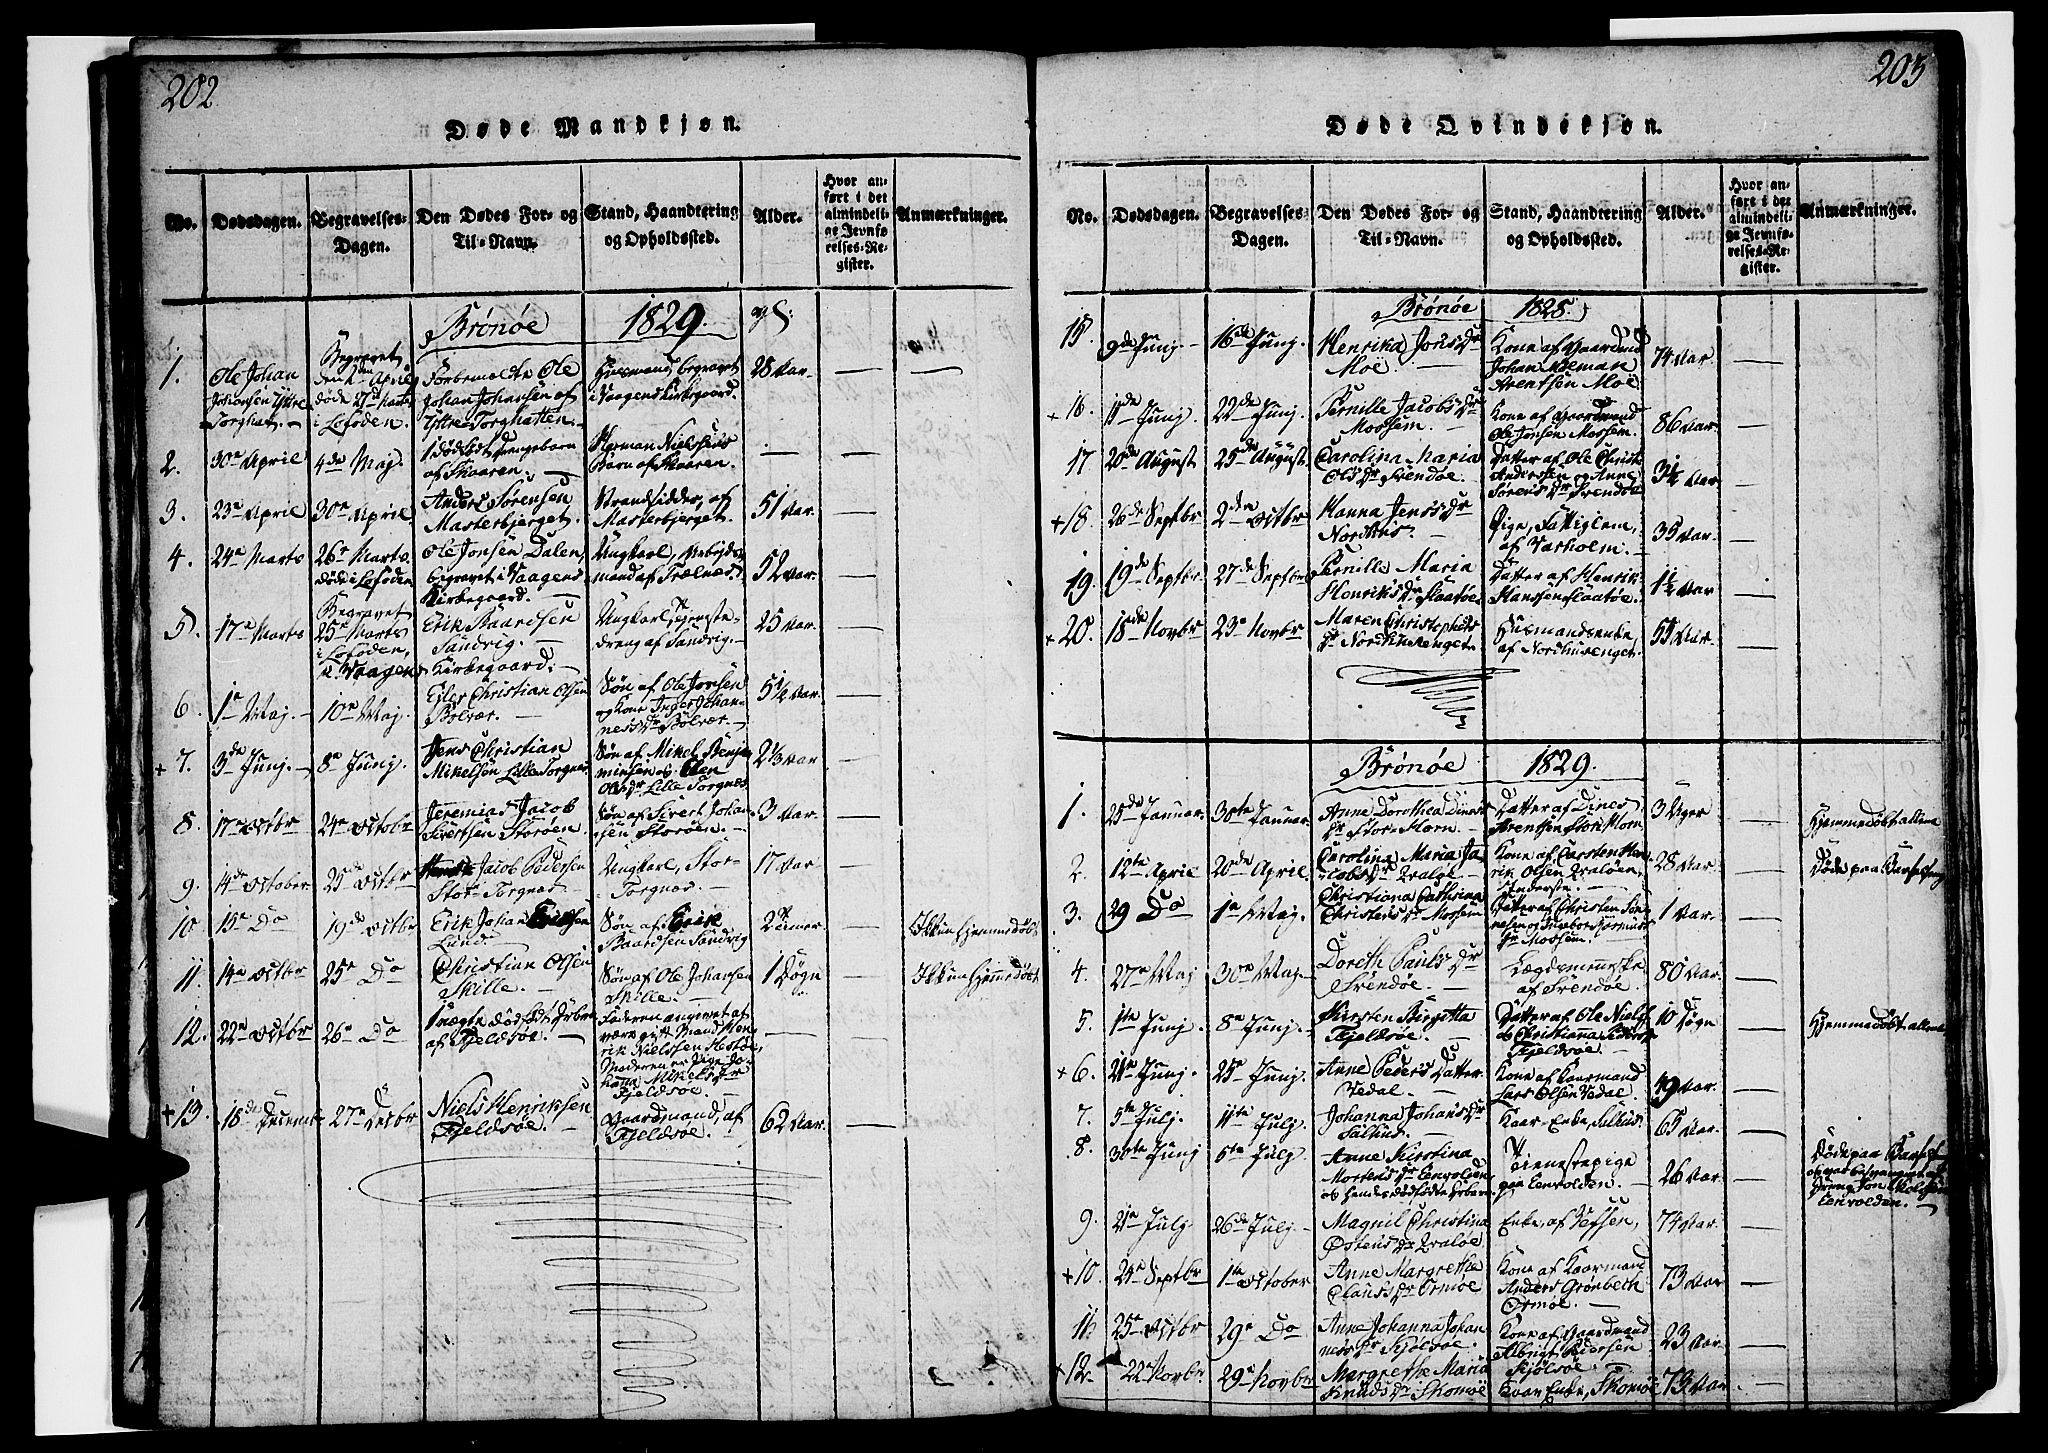 202
Døde Mandkjøn.
No. Dødsdagen. Begravelses-Dagen. Den Dødes For- og Til-Navn. Stand, Haandtering og Opholdssted. Alder. Hvor anført i det almindelige Jevnførelses-Register. Anmærkninger.
Brönöe 1829.
1. Ole Johan Johansen Ytre Torghat. Begravet den 1 April døde 27de Marts i Lofoden. Forbemeldte Ole Johan Johansen af Ytre Torghatten. Huusmand begravet i Vaagens Kirkegaard. 28 Aar.
2. 30te April 4de Maj. 1 dødfødt Drengebarn af Skaaren. Herman Nielsens Barn af Skaaren.
3. 23de April 30te April. Anders Sörensen Masterbjerget. Strandsidder, af Masterbjerget. 51 Aar.
4. 24de Marts 26de Marts døde i Lofoden. Ole Jonsen Dalen, begravet i Vaagens Kirkegaard. Ungkarl, Arbejdsmand af Trælnes. 52 Aar.
5. 17de Marts Begravet 25de Marts i Lofoden, i Vaagens Kirkegaard. Erik Baardsen Sandvig. Ungkarl, Tjenestedreng af Sandvig. 25 Aar.
6. 1te Maj. 10de Maj. Ejler Christian Olsen Bolvær. Søn af Ole Jonsen og Kone Inger Johannesdr Bolvær. 5½ Aar.
+ 7. 3de Junj. 8de Junj. Jens Christian Mikelsön Lille Torgnes. Søn af Mikel Benjaminsen og Ellen Olsdr Lille Torgnes. 2⅓ Aar.
8. 17de Octbr 24de Octobr Jeremias Jacob Sivertsen Storöen. Søn af Sivert Johansen Storöen. 3 Aar.
9. 14de October 25de Octbr Jacob Pedersen Stor-Torgnes. Ungkarl, Stor-Torgnes. 17 Aar
10 15de Do 19de Octbr Erik Johan Eriksen Lund. Søn af Erik Baardsen Sandvig 2 Timer. Ikkun hjemmedöbt
11. 14de Octbr 25de Do Christian Olsen Skille. Søn af Ole Johansen Skille. 1 Døgn Ikkun hjemmedöbt
12. 22de Octbr 26de Do 1 uægte dødfødt Drbarn af Fjeldsöe. Faderen angivet at være gift Mand Henrik Nielssen Hestöe, Moderen er Pige Johana Mikelsdr Fjeldsöe.
+ 13. 18de Decembr 27de Decbr Niels Henriksen Fjeldsöe. Gaardmand, af Fjeldsöe. 62 Aar.
203
Døde Qvindekjøn.
No. Dødsdagen. Begravelses-Dagen. Den Dødes For- og Til-Navn. Stand, Haandtering og Opholdssted. Alder. Hvor anført i det almindelige Jevnførelses-Register. Anmærkninger.
Brönöe 1828.
15. 9de Junj. 16de Junj. Henrika Jonsdr Moe. Kone af Gaardmd Johan Arentsen Moe. 74 Aar.
+ 16. 11de Junj 22de Junj. Pernille Jacobsdr Mossem. Kone af Gaardmand Ole Jonsen Mossem. 86 Aar.
17 20de August 25de August. Carolina Maria Olsdr Trendöe. Datter af Ole Christ. Anderssen og Anne Sörensdr Trendöe 3½ Aar
+ 18. 26de Septbr 2den Octbr Hanna Jensdr Nordhus. Pige, Fattiglem, af Varholm. 39 Aar.
19. 19de Septbr. 27de Septbr Pernille Maria Henriksdr Slaatöe. Datter af Henrik Hanssen Slaatöe. 1½ Aar
+ 20. 18de Novbr 23de Novbr Maren Christophersdr Nordhusenget. Husmandsenke af Nordhusenget. 55 Aar.
Brönöe 1829.
1. 25de Januar. 30te Januar. Anne Dorothea Dinesdr Stor-Horn. Datter af Dines Arentsen Stor Horn 3 Uger Hjemmedöbt allene
2. 12te April 20de April. Carolina Maria Jacobsdr Qvalöe. Kone af Carsten Henrik Olsen Qvalöen, 28 Aar. Døde paa Barselseng
3. 29 Do 1te Maj. Christiana Cathrina Christensdr Mossem Datter af Christen og Mossem. 1 Aar.
4. 27de Maj 30te Maj. Doreth Paulsdr Trendöe. Lægdsmenneske af Trendöe. 80 Aar.
5. 1te Junj 8de Junj. Kirsten Birgitta Fjeldsöe. Datter af Ole Niels. og Christianna Pedersdr Fjeldsöe. 10 Døgn Hjemmedöbt allene
+ 6. 21de Junj. 25de Junj. Anne Peders Datter Vedal. Kone af Kaarmand Lars Olsen Vedal. 49 Aar.
7. 5te Julj. 11te Julj. Johanna Johansdr Salhus. Kaar-Enke, Salhus. 65 Aar.
8. 30te Junj 6te Julj. Anne Kirstina Mortensdr Eenvolden og hendes dødfødte Drbarn. Tjenestepige paa Eenvolden. 26 Aar. Døde paa Barselseng Eenvolden.
9. 21de Julj 26de Julj. Magnil Christina Östensdr Qvalöe. Enke, af Vefsen, 74 Aar.
+ 10. 24de Septbr 1te October Anne Margrethe Clausdr Ormöe. Kone af Kaarmand Anders Grönbech Ormöe. 73 Aar
11. 25de Octbr 29de Do Anne Johanna Johannesdr Kjölsöe. Kone af Gaardmand Albrigt Pedersen Kjölsöe. 23 Aar.
+ 12. 22de Novbr 29de Novbr Margrethe Maria Knudsdr Skomoe Kaar Enke, Skomoe 73 Aar.